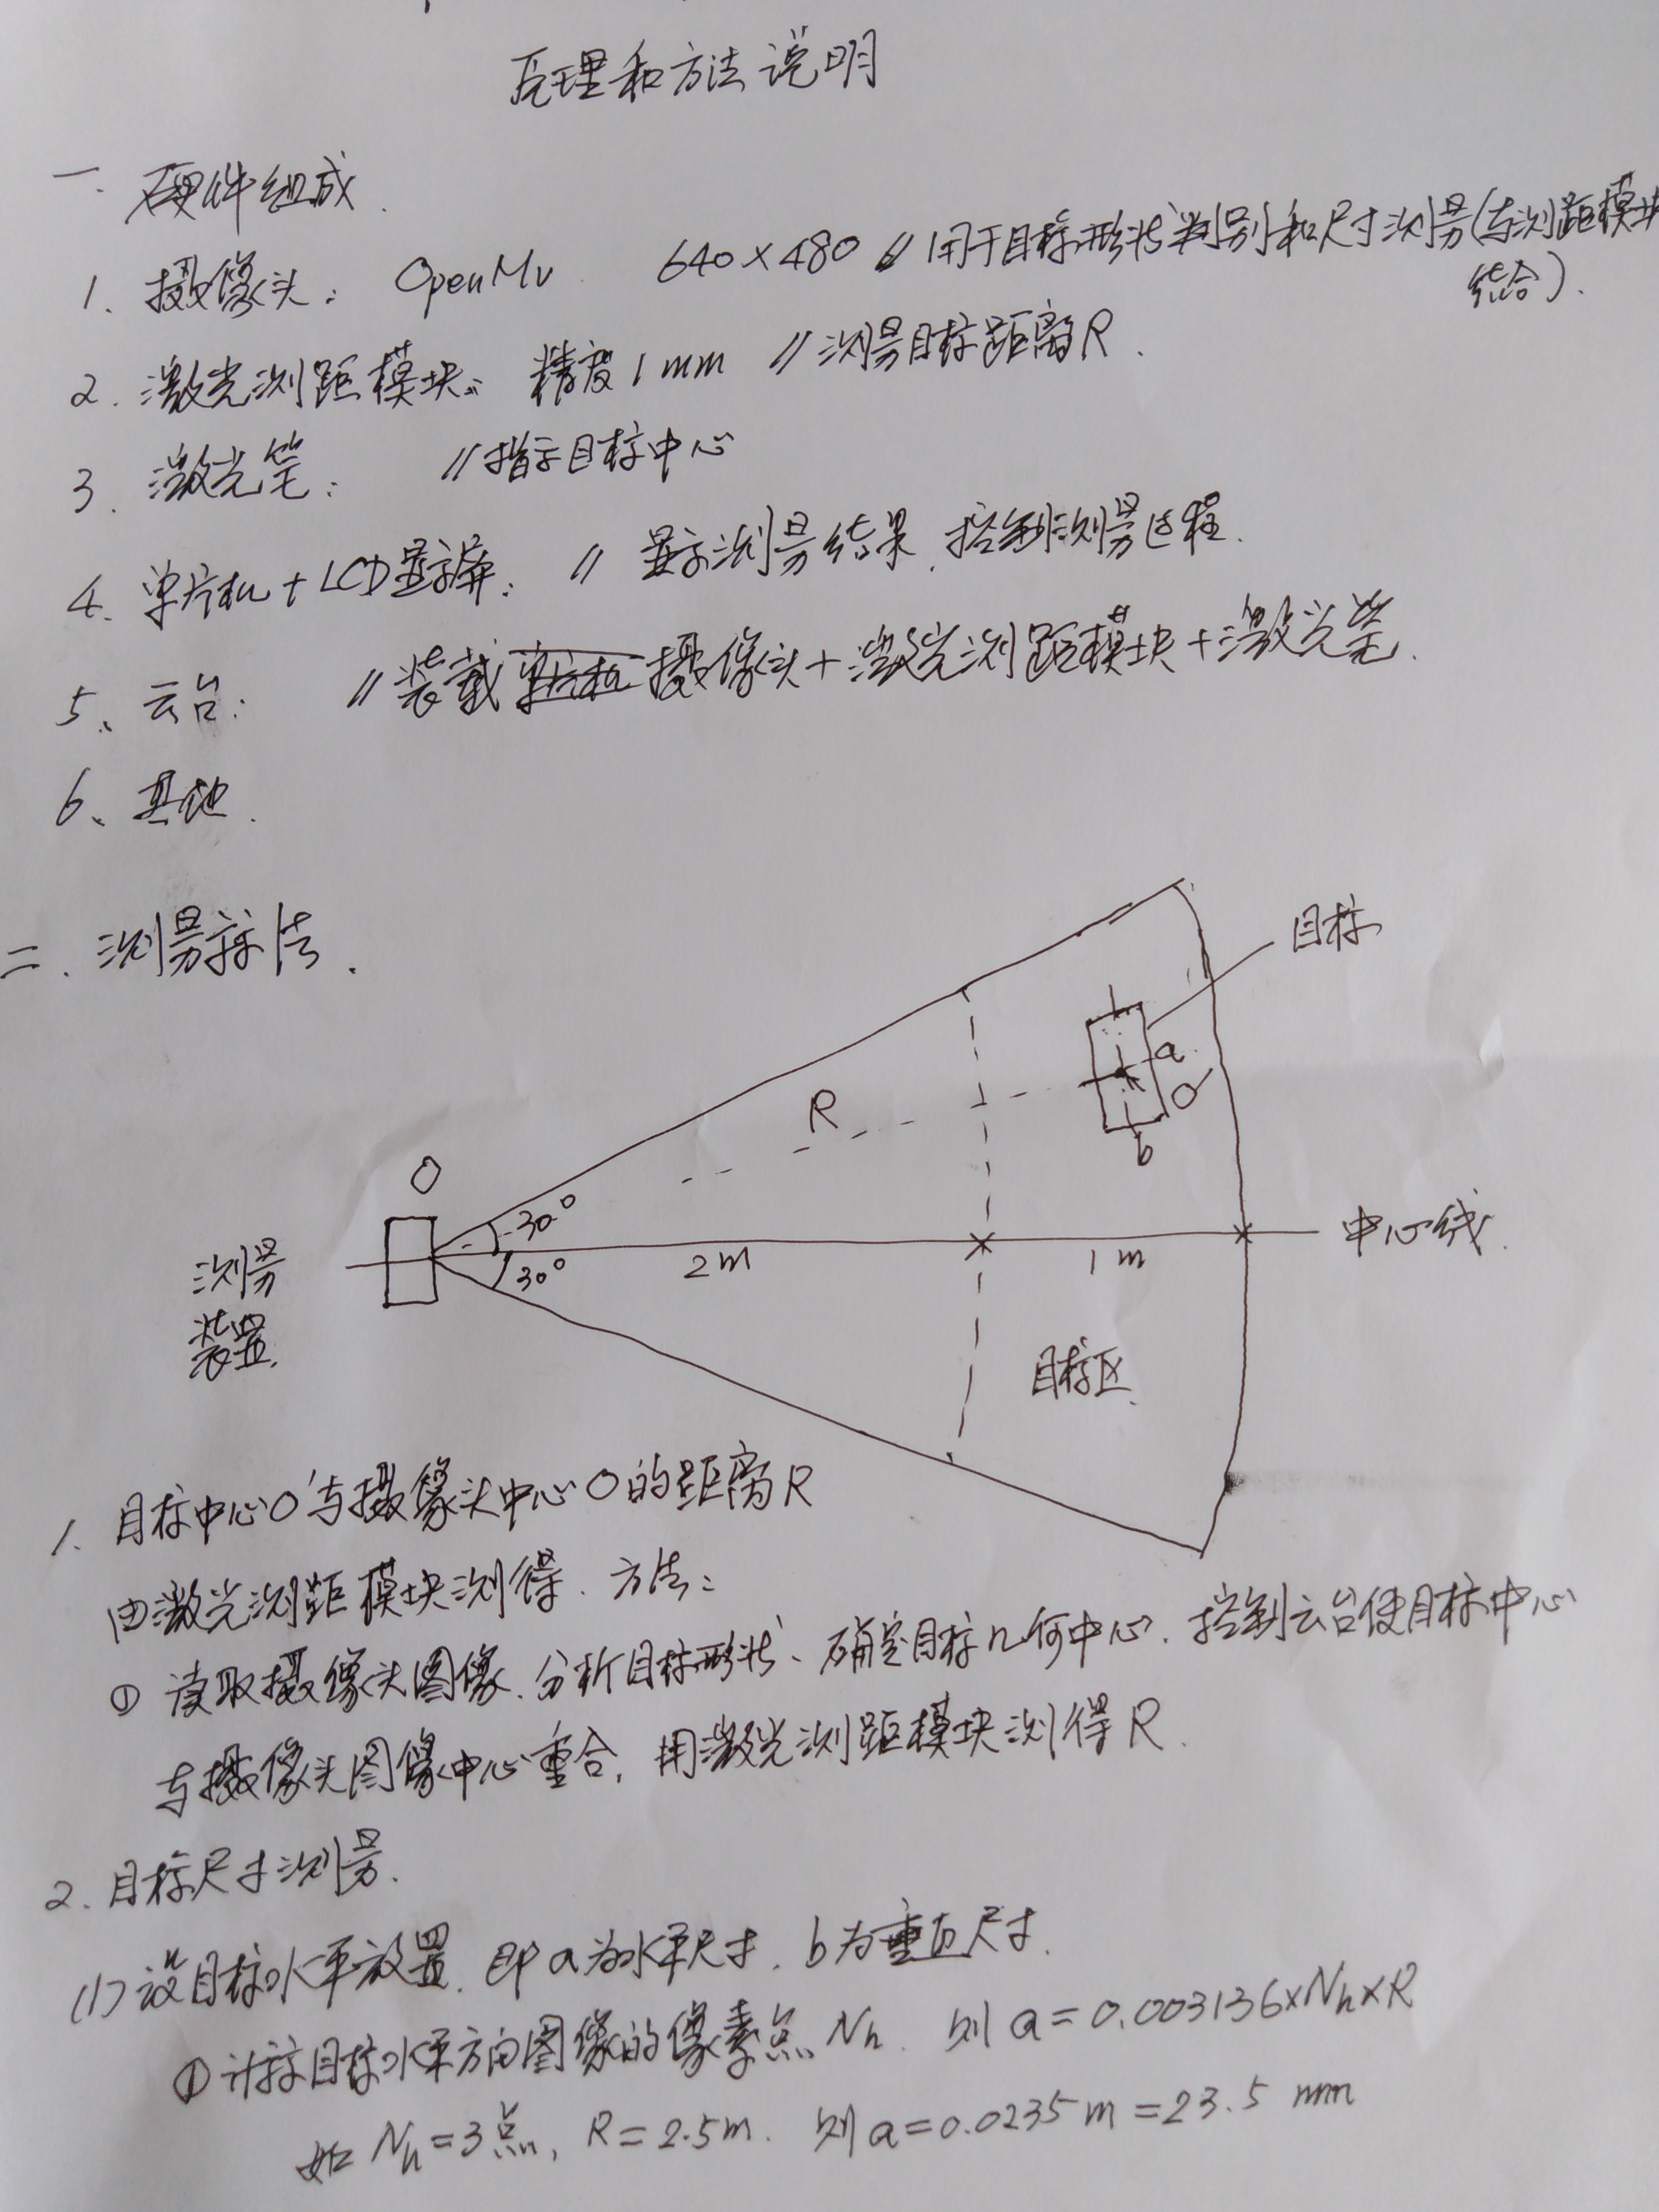 原理和方法说明
一. 硬件组成.
1. 摄像头: OpenMv 640×480 // 用于目标形状判别和尺寸测量(与测距模块
结合).
2. 激光测距模块: 精度1mm // 测量目标距离R.
3. 激光笔: // 指示目标中心
4. 单片机+LCD显示屏: // 显示测量结果、控制测量过程.
5、云台: // 装载单片机摄像头+激光测距模块+激光笔.
6、其他.
二. 测量方法.
目标
a
O'
b
R
O
30°
30°
2m
1m
中心线.
测量
装置.
目标区.
1. 目标中心O'与摄像头中心O的距离R
由激光测距模块测得. 方法:
① 读取摄像头图像、分析目标形状、确定目标几何中心. 控制云台使目标中心
与摄像头图像中心重合, 用激光测距模块测得R.
2. 目标尺寸测量.
(1) 设目标水平放置. 即a为水平尺寸. b为垂直尺寸.
① 计算目标水平方向图像的像素点Nh. 则 a=0.003136×Nh×R
如 Nh=3点, R=2.5m. 则a=0.0235m=23.5mm